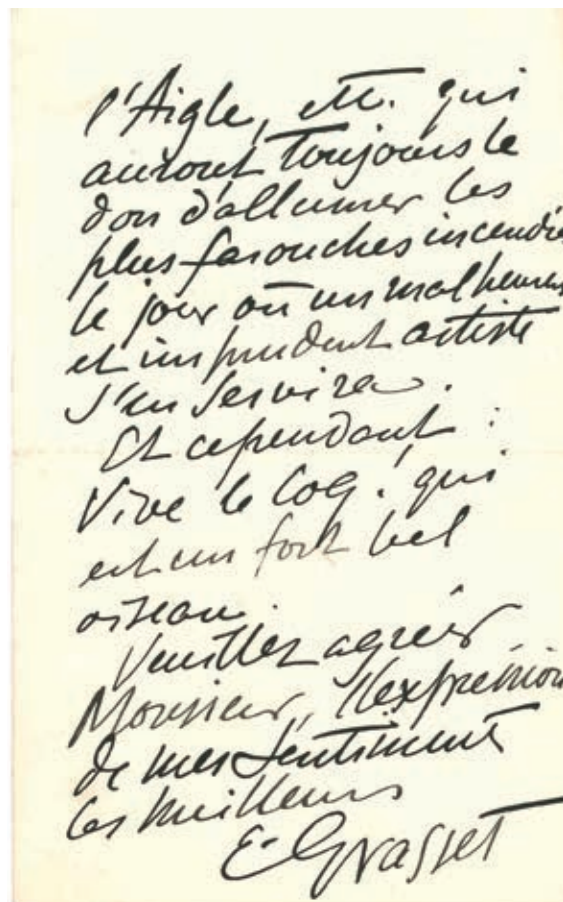 l'Aigle, etc. qui
auront toujours le
don d'allumer les
plus farouches incendies
le jour où un malheureux
et imprudent artiste
s'en servira.
Et cependant :
Vive le Coq ! qui
est un fort bel
oiseau.
Veuillez agréer
Monsieur, l'expression
de mes sentiments
les meilleurs
E. Grasset